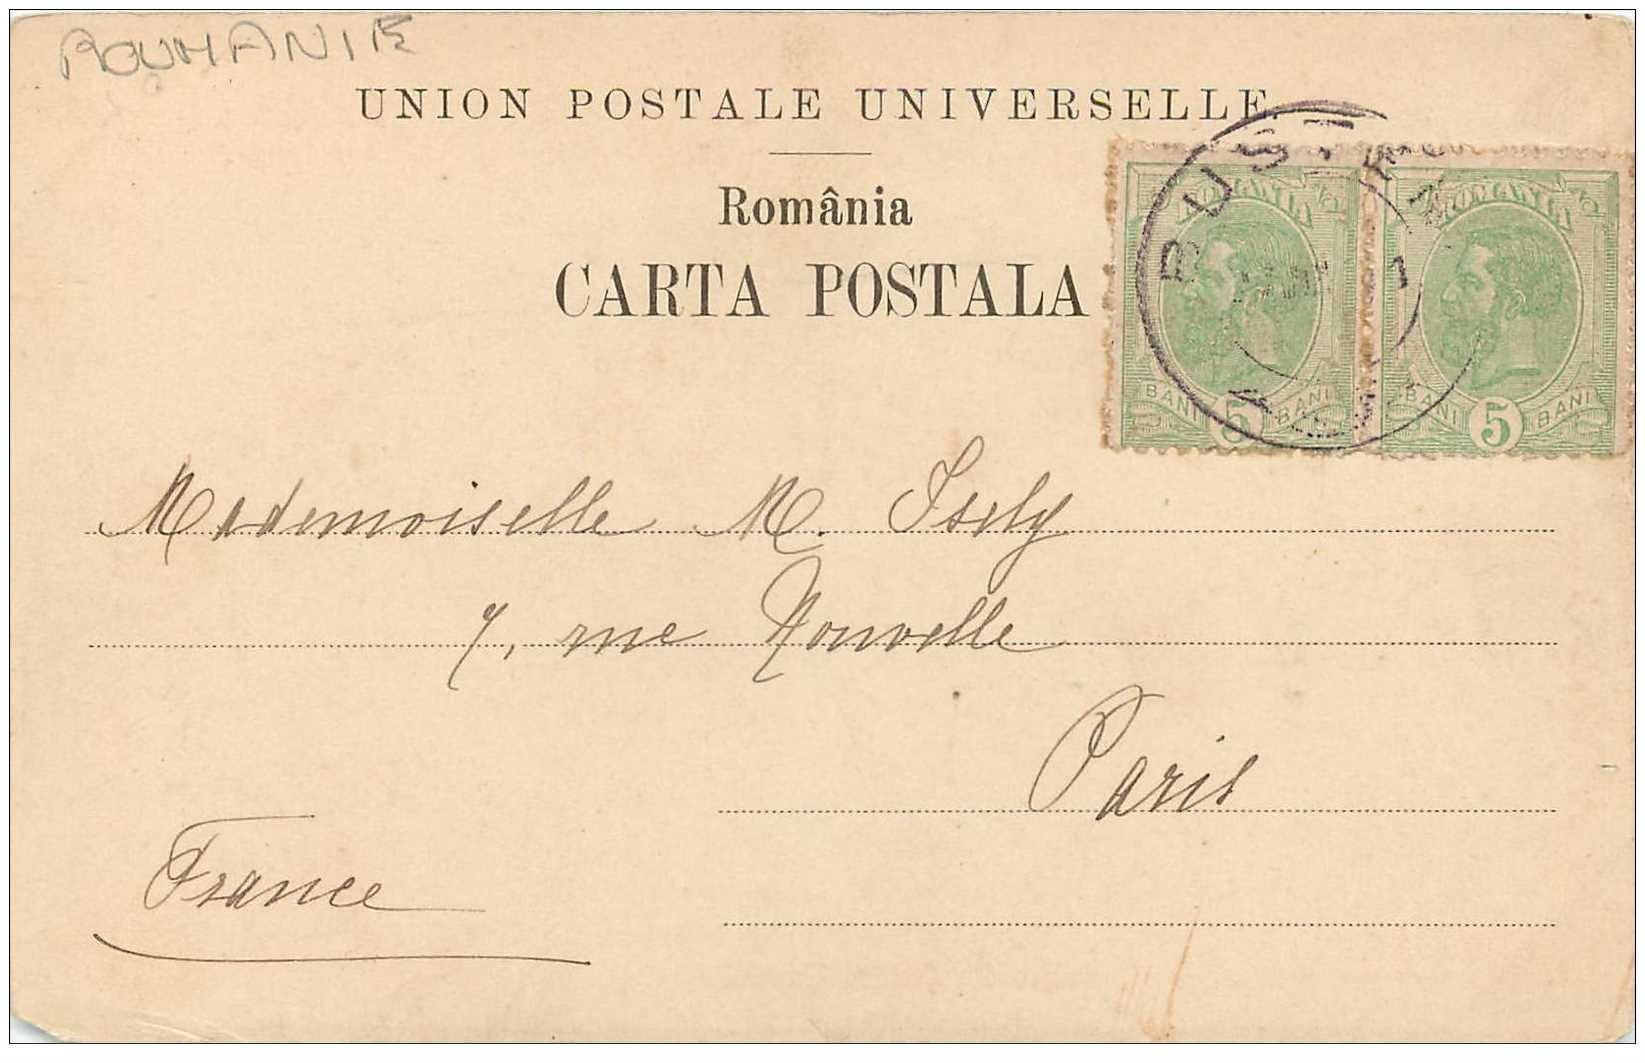 ROUMANIE
UNION POSTALE UNIVERSELLE
România
CARTA POSTALA
ROMANIA
ROMANIA
BANI 5 BANI
BANI 5 BANI
Mademoiselle M. Isely
7, rue Nouvelle
Paris
France